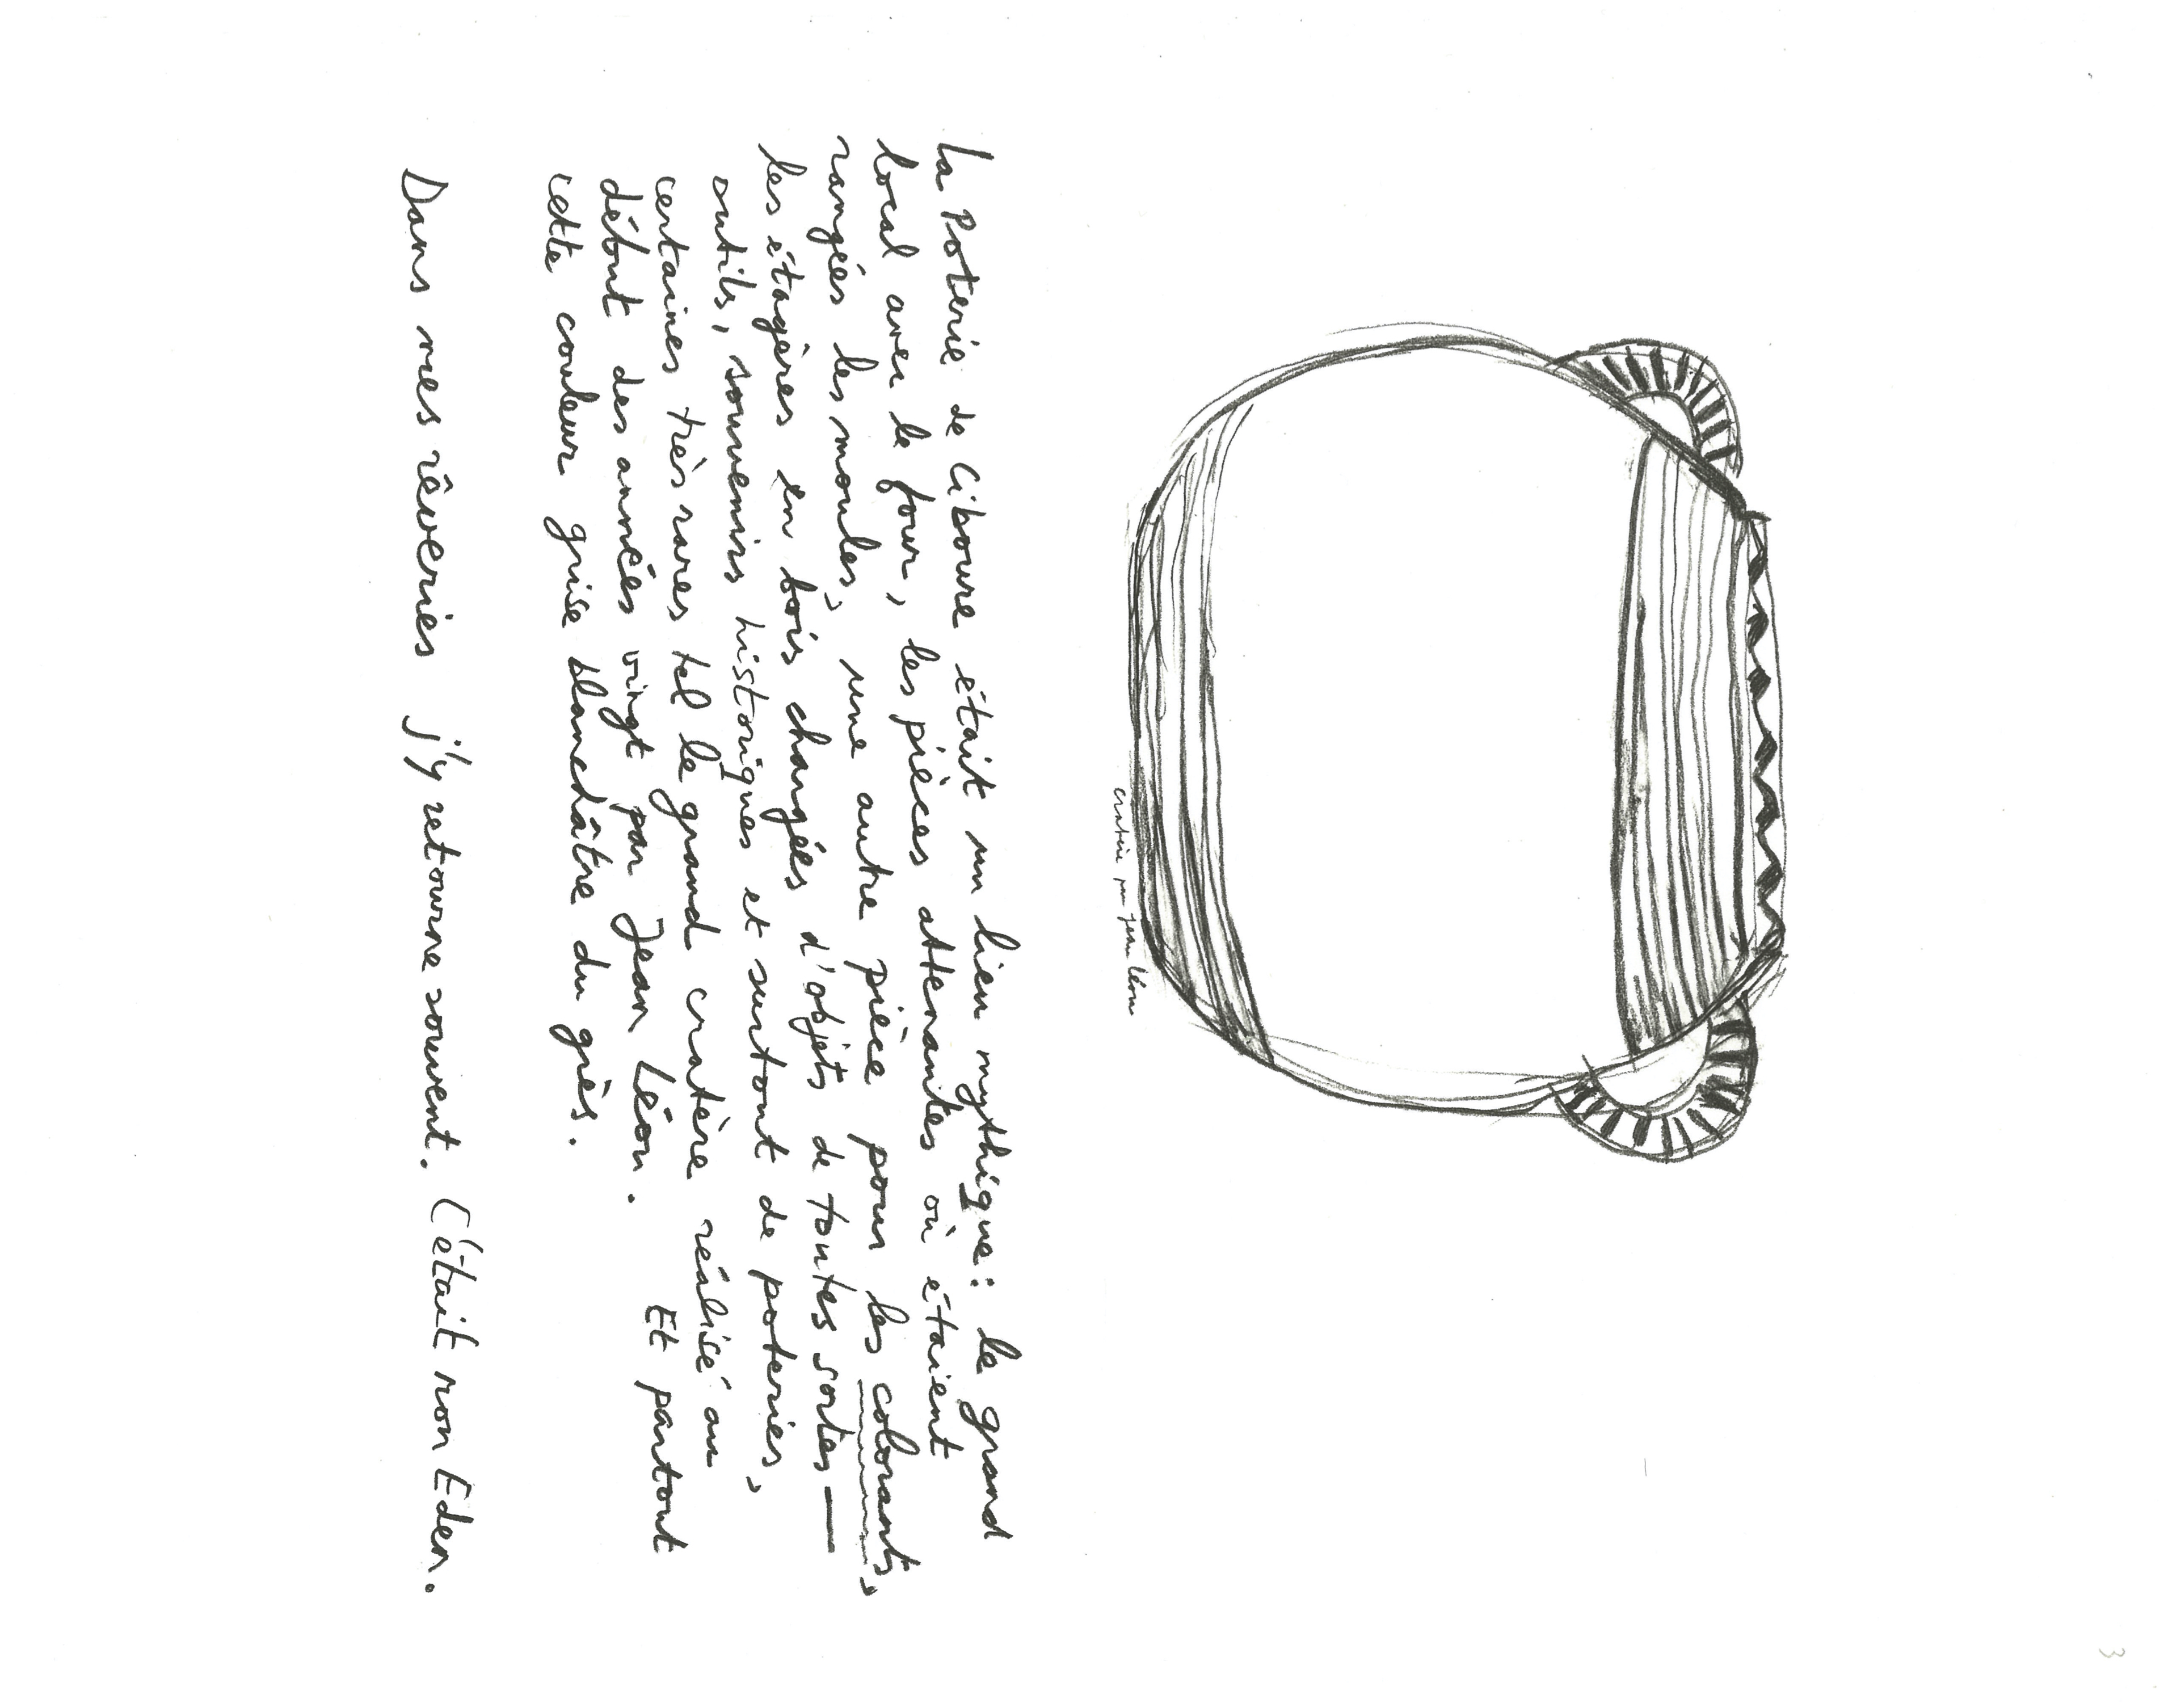 3
cratère par Jean Léon
La Poterie de Ciboure était un lieu mythique : le grand
local avec le four, les pièces attenantes où étaient
rangées les moules, une autre pièce pour les colorants,
les étagères en bois chargées d'objets de toutes sortes —
outils, souvenirs historiques et surtout de poteries,
certaines très rares tel le grand cratère réalisé au
début des années vingt par Jean Léon. Et partout
cette couleur grise blanchâtre du grès.
Dans mes rêveries j'y retourne souvent. C'était mon Eden.